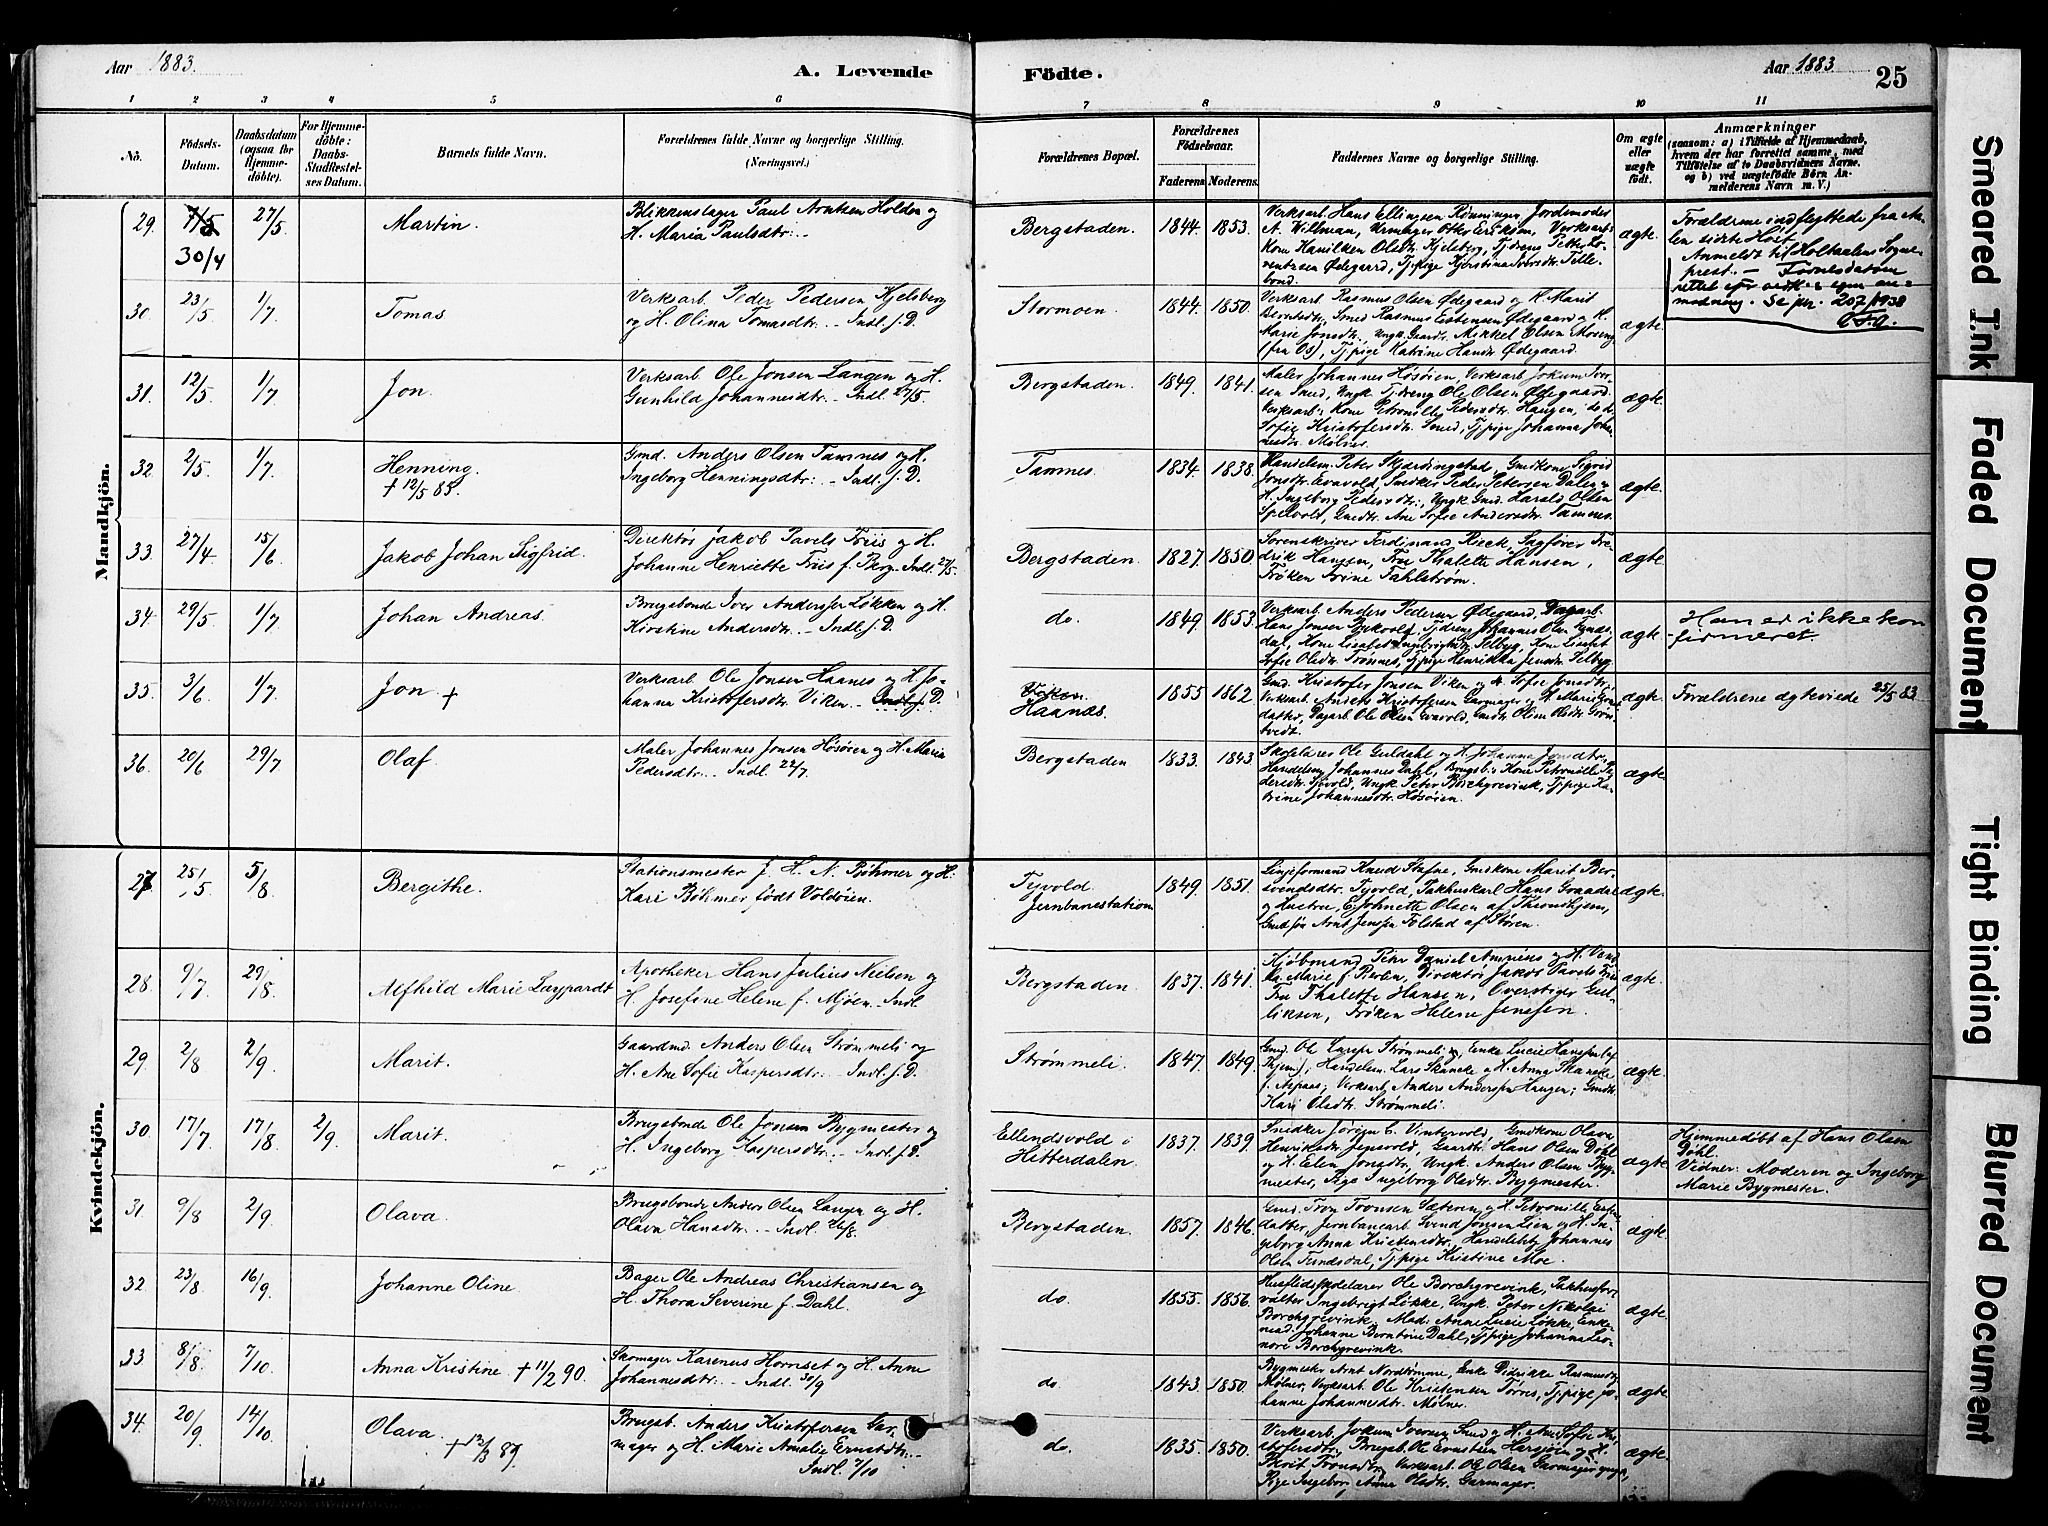 Aar 1883.
A. Levende Födte.
Aar 1883
25
1 2 3 4 5 6 7 8 9 10 11
No.
Födsels-Datum.
Daabsdatum (ogsaa for Hjemme-döbte).
For Hjemme-döbte: Daabs-Stadfæstel-ses Datum.
Barnets fulde Navn.
Forældrenes fulde Navne og borgerlige Stilling.
(Næringsvei.)
Forældrenes Bopæl.
Forældrenes Födselsaar.
Faderens. Moderens.
Faddernes Navne og borgerlige Stilling.
Om ægte eller uægte födt.
Anmærkninger
(saasom: a) i Tilfælde af Hjemmedaab,
hvem der har forrettet samme, med
Tilföielse af to Daabsvidners Navne,
og b) ved uægtefödte Börn An-
melderens Navn m. V.)
Mandkjön.
29. 30/4 27/5. Martin.
Blikkenslager Paul Arntsen Holden og
H. Maria Paulsdtr. –
Bergstaden. 1844. 1853.
Verksarb. Hans Ellingsen Rönningen, Jordemoder
A. Willman, Urmager Otter Ericksen, Verksarb.
Kone Hanikken Olsdtr. Kjelsberg, Tjdreng Petter Lo-
rentzsen Ødegaard, Tjpige Kjerstina Iversdtr. Telle-
bond.
ægte.
Forældrene indflyttede fra Aa-
len sidste Höst.
Anmeldt til Holtaalens Sogne-
prest. – Fødselsdatum
rettet
modning. Se jnr. 207/1938
30. 23/5 1/7. Tomas
Verksarb. Peder Pedersen Kjelsberg
og H. Olina Tomasdtr. – Indl. s. D.
Stormoen. 1844. 1850.
Verksarb. Rasmus Olsen Ødegaard og H. Marit
Berntsdtr., Smed Rasmus Estensen Ødegaard og H.
Marie Jonsdtr., Ungk. Gaardtr. Mikkel Olsen Moseng
(fra Os), Tjpige Katrine Hansdtr. Ødegaard.
ægte.
31. 12/5. 1/7. Jon.
Verksarb. Ole Jonsen Langen og H.
Gunhild Johannesdtr. – Indl. 27/5.
Bergstaden. 1849. 1841.
Maler Johannes Hösöien, Verksarb. Jokum Iver-
sen Smed, Ungk. Tjdreng Ole Olsen Ødegaard.
Verksarb.s Kone Petronille Pedersdtr. Haugen, do. do.
Sofie Kristofersdtr. Smed, Tjpige Johanna Johan-
nesdtr. Mölner.
ægte.
32. 2/5. 1/7. Henning.
† 12/5 85.
Gmd. Anders Olsen Tamnes og H.
Ingeborg Henningsdtr. – Indl. s. D.
Tamnes. 1834. 1838.
Handelsm. Peter Skjærdingstad, Gmdkone Sigrid
Jonsdtr. Evavold, Snedker Peder Petersen Dalen og
H. Ingeborg Pedersdtr., Ungk. Gmd. Harald Olsen
Spellvold, Gmdtr. Ane Sofie Andersdtr. Tamnes.
ægte.
33. 27/4 15/6. Jakob Johan Sigfrid.
Direktör Jakob Pavels Friis og H.
Johanne Henriette Friis f. Berg. Indl. 27/5.
Bergstaden. 1827. 1850.
Sorenskriver Ferdinand Rieck, Sagförer Fre-
drik Hansen, Fru Thalette Hansen,
Fröken Trine Fahlström.
ægte.
34. 29/5. 1/7. Johan Andreas.
Brugsbonde Iver Anderssen Lökken og H.
Kirstine Andersdtr. – Indl. s. D.
do. 1849. 1853.
Verksarb. Anders Pedersen Ødegaard, Dagarb.
Hans Jonsen Ryckvold, Tjdreng Johannes Olsen Tynds-
dal, Kone Lisabet Ingebrigtsdtr. Selbyg, Kone Lisabet
Sofie Olsdtr. Trönnes, Tjpige Henrikka Jensdtr. Selbyg.
ægte.
Han er ikke kon-
firmeret.
35. 3/6 1/7. Jon. †
Verksarb. Ole Jonsen Haanes og H. Jo-
hanna Kristofersdtr. Viken. – Indl. s. D.
Viken.
Haanæs.
1855. 1862
Gmd. Kristofer Jonsen Viken og H. Sofie Jonsdtr.,
Verksarb. Anders Kristofersen Garmager og H. Marie Ernst-
datter, Dagarb. Ole Olsen Evavold, Gmdtr. Olina Olsdtr. Grön-
tvedt.
ægte.
Forældrene ægteviede 25/5 83.
36. 20/6 29/7 Olaf
Maler Johannes Jonsen Hösöien og H. Maria
Pedersdtr. – Indl. 22/7.
Bergstaden 1833. 1843
Skolelærer Ole Guldahl og H. Johanna Jonsdtr.,
Handelsm. Johannes Dahl, Brugsb.s Kone Petronille Pe-
dersdtr. Tyvold, Ungk. Peter Borchgrevink, Tjpige Ka-
trine Johannesdtr. Hösöien.
ægte
Kvindekjön.
27 25/5 5/8 Bergithe.
Stationsmester J. H. N. Böhmer og H.
Kari Böhmer född Voldöien.
Tyvold Jernbanestation 1849. 1851.
Linjeformand Knud Stafne, Gmdkone Marit Ber-
svendsdtr. Tyvold, Pakhuskarl Hans Graadal
og Hustru, E. Johnette Olsen af Throndhjem,
Gmdsön Arnt Jensen Folstad af Stören.
ægte.
28. 9/7 29/8. Alfhild Marie Laypardt
Apotheker Hans Julius Nielsen og
H. Josefine Helene f. Mjöen. – Indl.
Bergstaden. 1837. 1841.
Kjöbmand Peter Daniel Amnéus og H. Vend-
la Marie f. Berlin, Direktör Jakob Pavels Friis
Fru Thalette Hansen, Overstiger Gul-
liksen, Fröken Helene Jensen.
ægte.
29. 2/8 2/9. Marit.
Gaardmd. Anders Olsen Strömmeli og
H. Ane Sofie Kaspersdtr. – Indl. s. D.
Strömmeli 1847. 1849.
Gmd. Ole Larsen Strömmeli, Enke Lucie Hanssen (af
Thjem), Handelsm. Lars Skancke og H. Anna Skancke
f. Aspaas, Verksarb. Anders Anderssen Haugen; Gmdtr.
Kari Olsdtr. Strömmeli.
ægte.
30. 17/7 17/8 2/9. Marit.
Brugsbonde Ole Jonsen Bygmester og
H. Ingeborg Kaspersdtr. – Indl. s. D.
Ellendsvold i Hitterdalen. 1837. 1839.
Snedker Jörgen C. Vintervold, Gmdkone Olava
Henriksdtr. Jensvold, Gaardtr. Hans Olsen Döhl
og H. Elen Jonsdtr., Ungk. Anders Olsen Byg-
mester, Pige Ingeborg Olsdtr. Bygmester.
ægte.
Hjemmedöbt af Hans Olsen
Döhl.
Vidner: Moderen og Ingeborg
Marie Bygmester.
31. 9/8 2/9. Olava.
Brugsbonde Anders Olsen Langen og H.
Olava Hansdtr. – Indl. 26/8.
Bergstaden. 1857. 1846.
Gmd. Tron Tronsen Sæteren og H. Petronille Ernst-
datter, Jernbanearb. Svend Jonsen Lien og H. In-
geborg Anna Kristensdtr., Handelsbetj. Johannes
Olsen Tyndsdal, Tjpige Kristine Moe.
ægte.
32. 23/8. 16/9. Johanne Oline.
Bager Ole Andreas Christiansen og
H. Thora Severine f. Dahl.
do. 1855. 1856.
Husflidsskolelærer Ole Borchgrevink, Pakhusfor-
valter Ingebrigt Lökke, Ungk. Peter Nikolai
Borchgrevink. Mad. Anne Lucie Lökke, Enke-
mad. Johanne Berntine Dahl, Tjpige Johanna Leo-
nore Borchgrevink.
ægte.
33 8/8. 7/10 Anna Kristine † 11/2 90.
Skomager Karenus Hornset og H. Anne
Johannesdtr. – Indl. 30/9
do. 1843. 1850.
Bygmester Arnt Nordtömme, Enke Didrikke Rasmusdtr.
Mölner, Verksarb. Ole Kristensen Tørres, Tjpige Jo-
hanne Johannesdtr. Mölner.
ægte
34. 20/9 14/10. Olava.
† 13/3 89.
Brugsb. Anders Kristofersen Gar-
mager og H. Marie Amalie Ernstdtr. –
Indl. 7/10
do. 1835. 1850.
Verksarb. Jokum Iversen Smed og H. Ane Sofie Kri-
stofersdtr., Brugsb. Ole Ernstsen Harsjöen og H.
Marit Tronsdtr., Verksarb. Ole Olsen Garmager
Pige Ingeborg Anne Olsdtr. Garmager.
ægte.
Smeared Ink
Faded Document
Tight Binding
Blurred Document